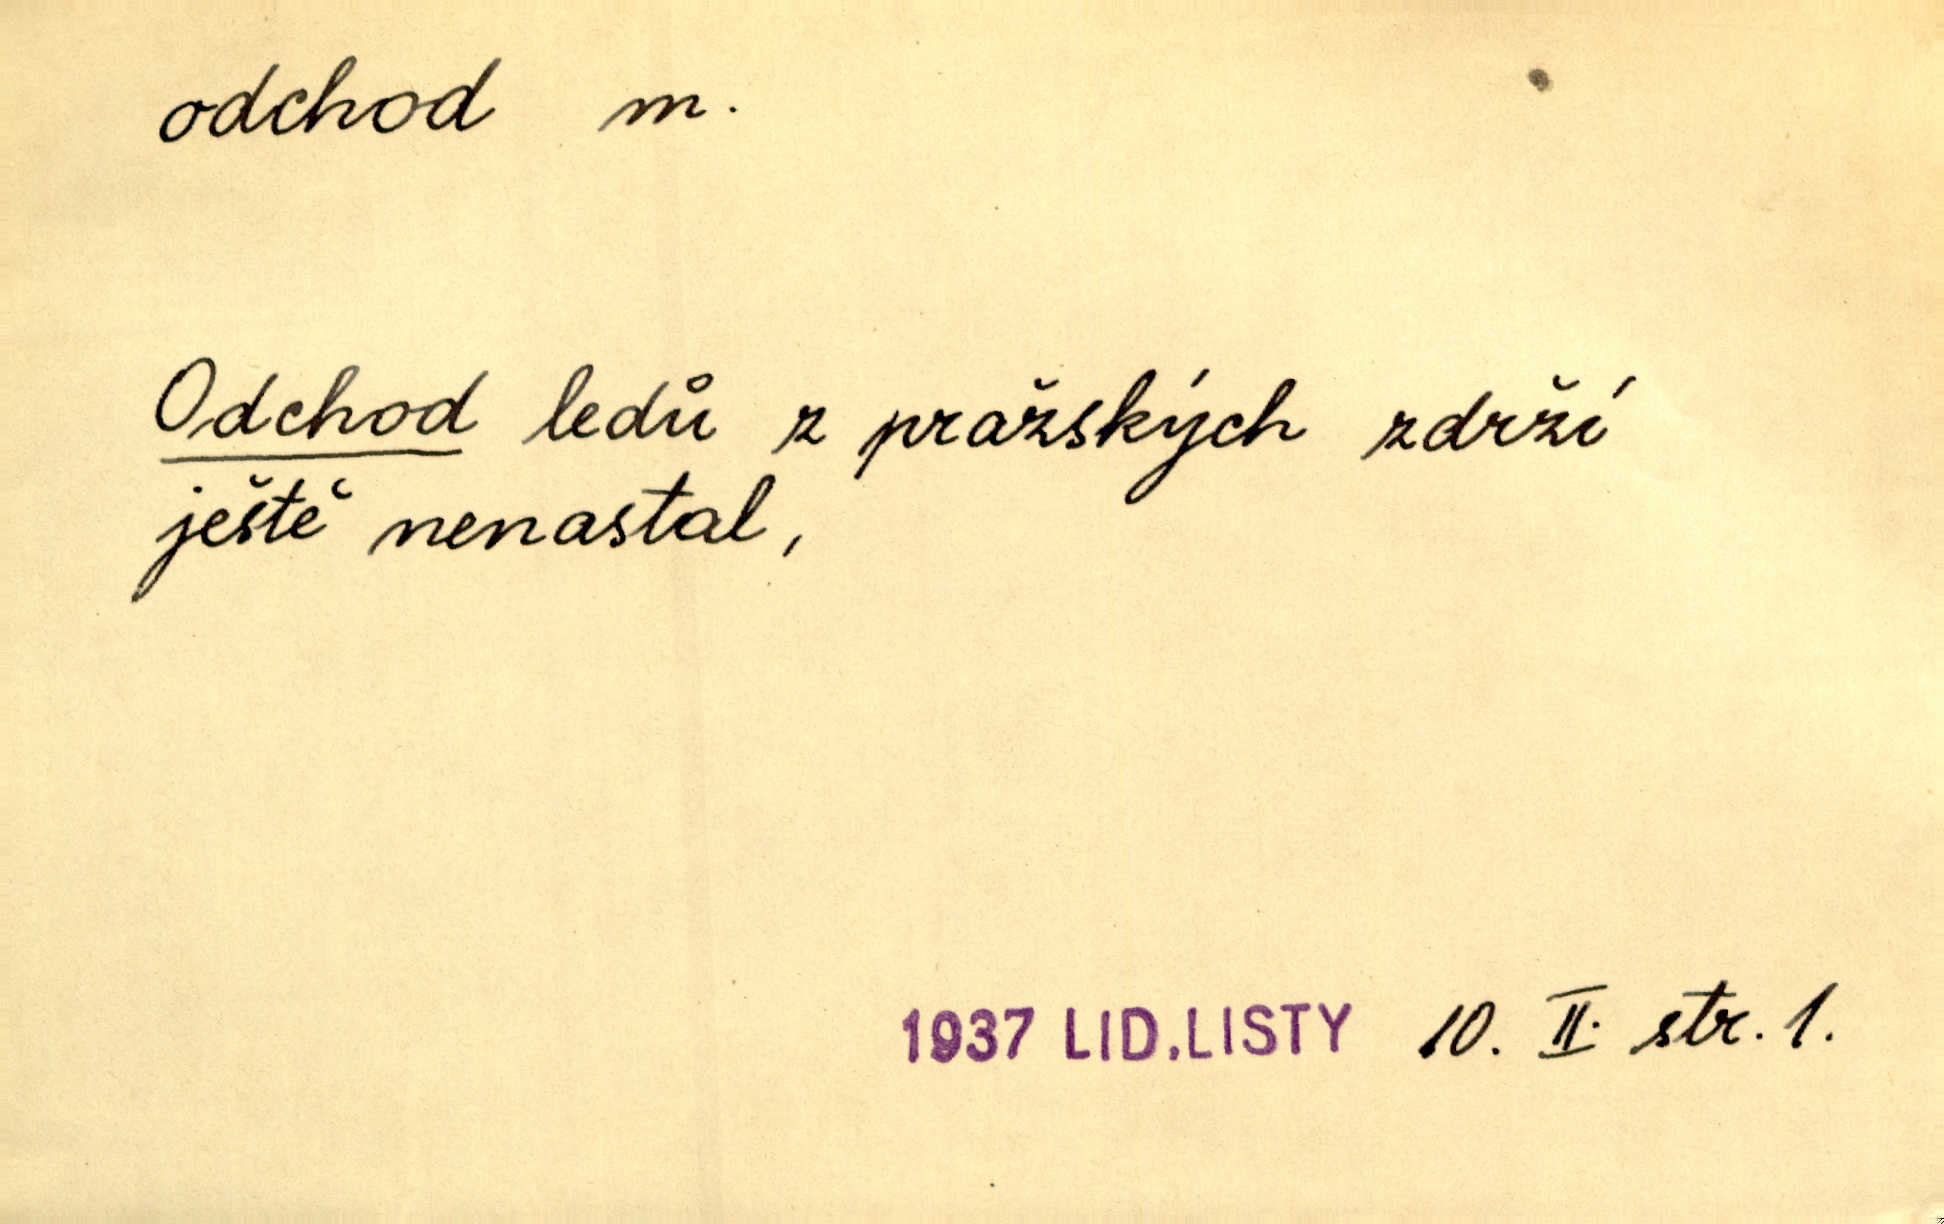 odchod m.
Odchod ledů z pražských zdrží
ještě nenastal,
1937 LID.LISTY 10. II. str. 1.